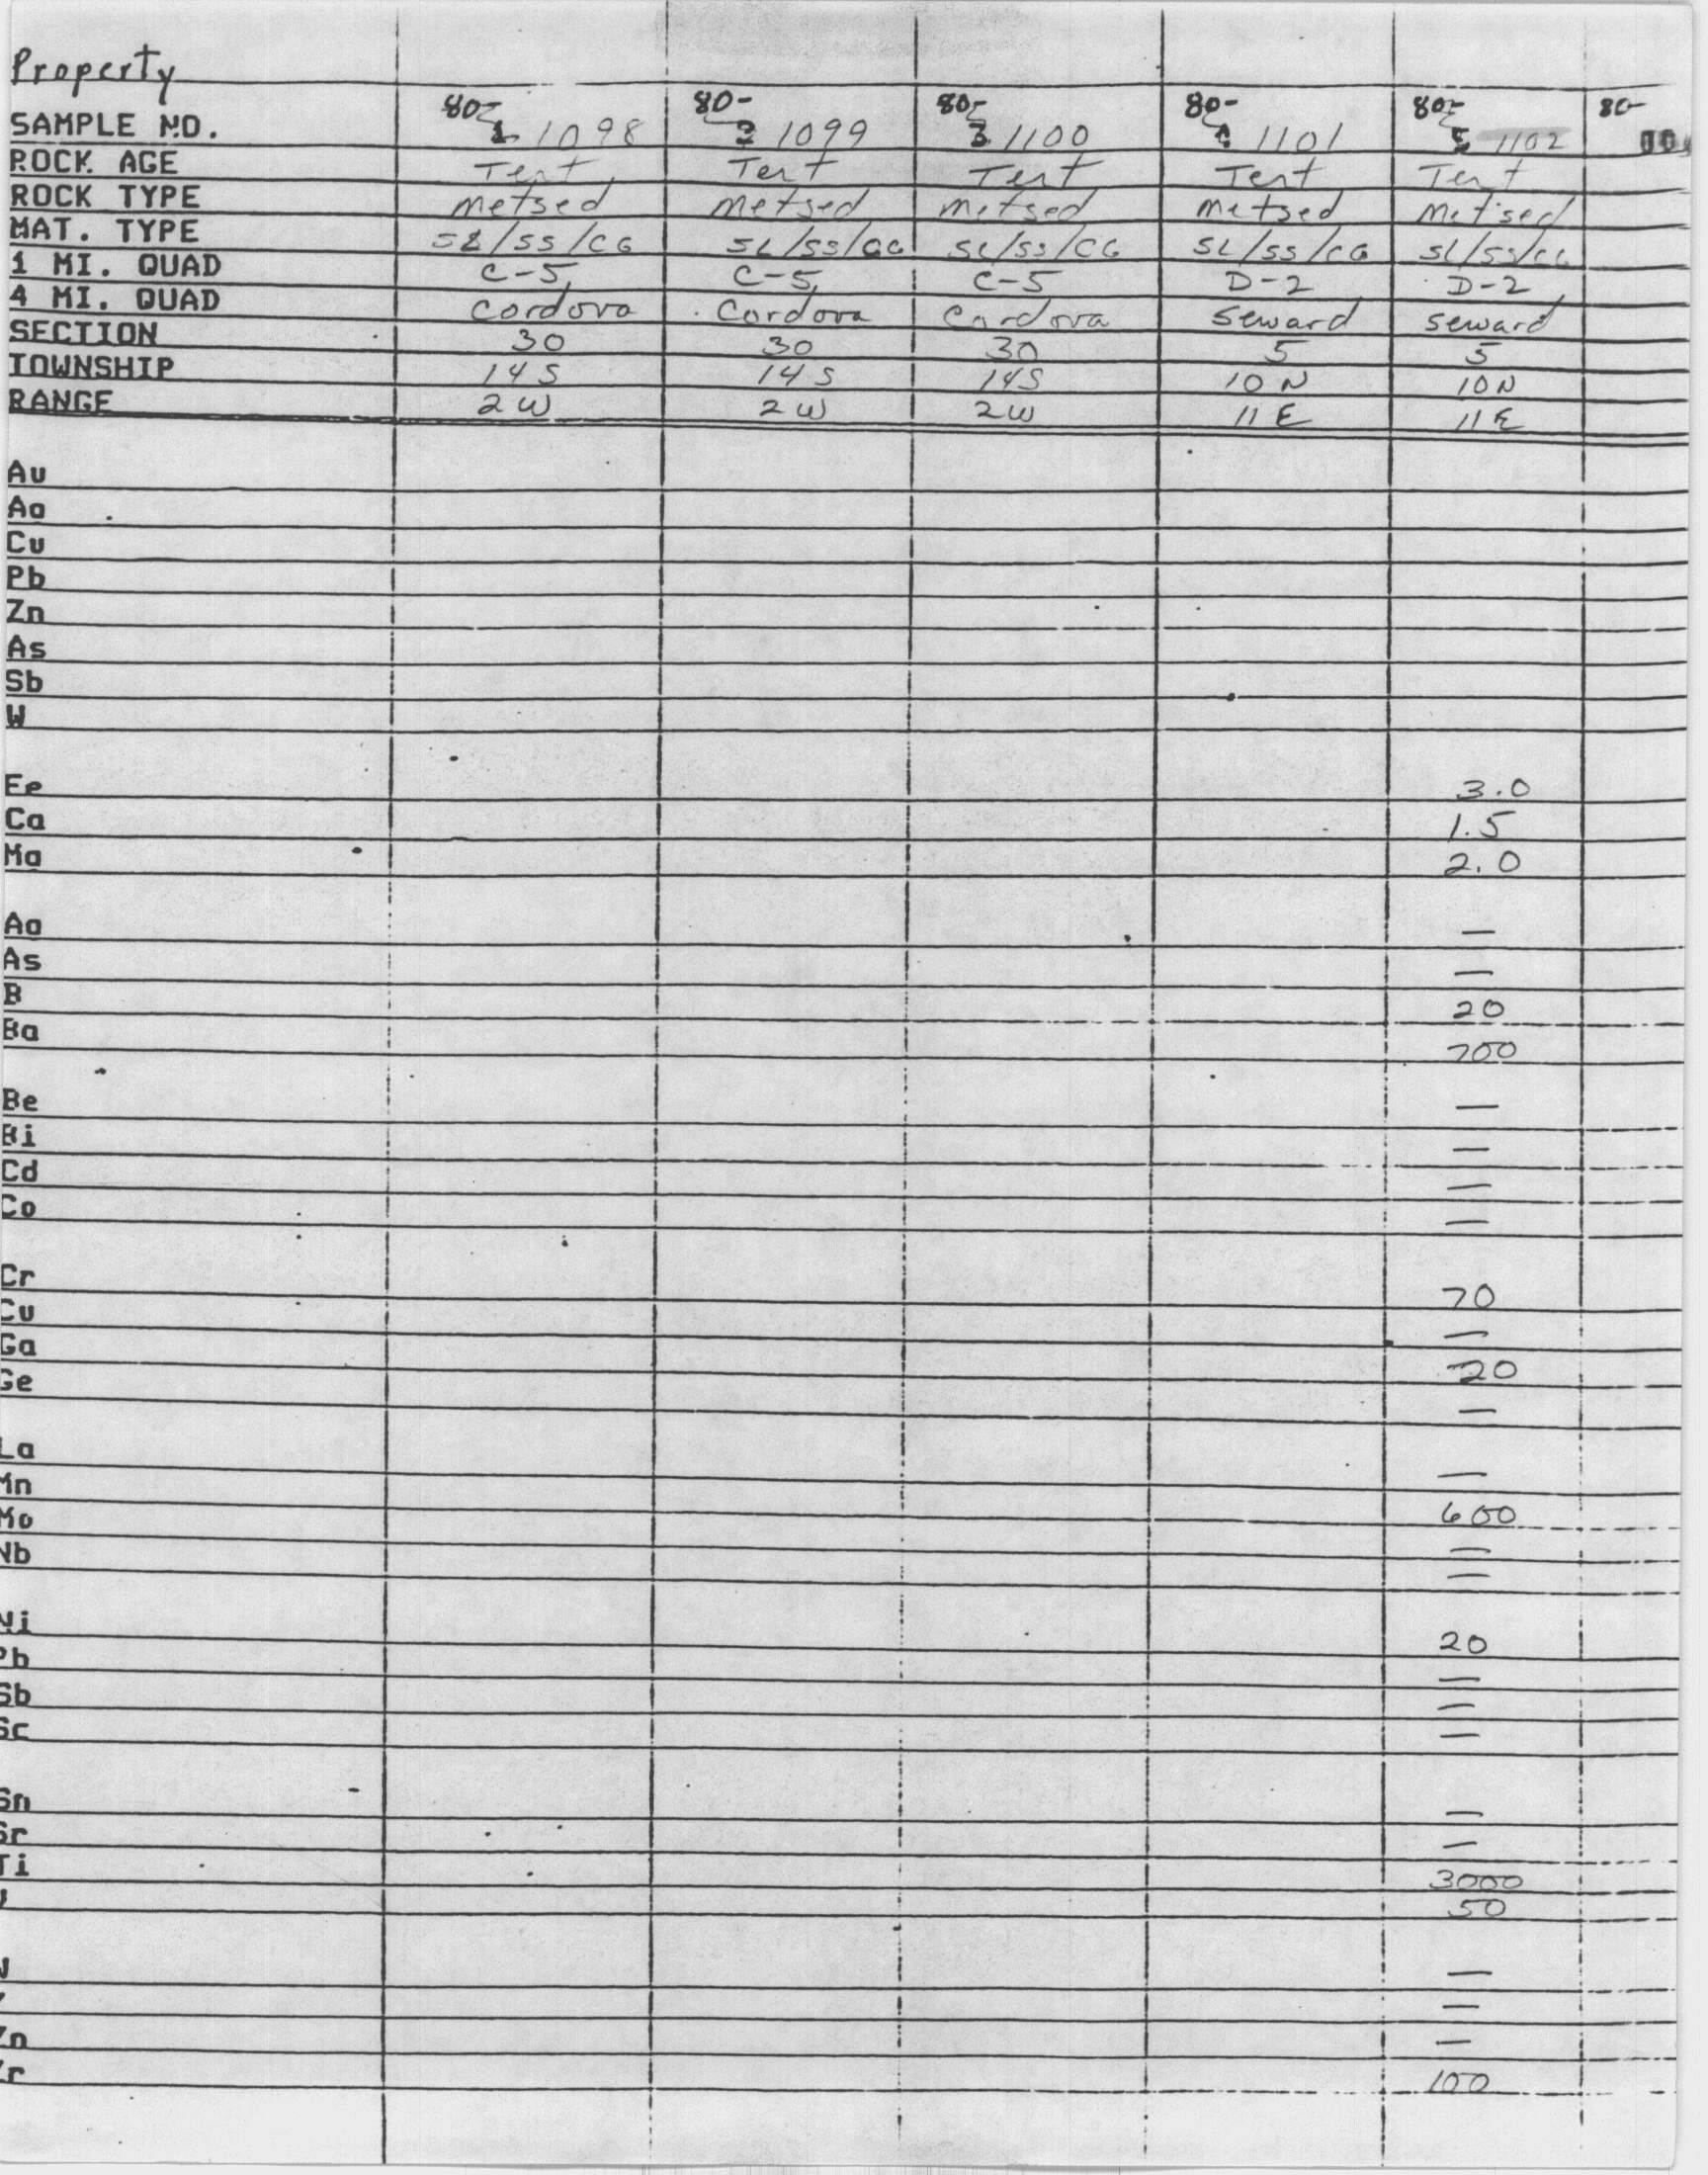 Property
SAMPLE NO. 80- 1098 80- 1099 80- 1100 80- 1101 80- 1102 80-
ROCK AGE Tert Tert Tert Tert Tert
ROCK TYPE Metsed Metsed Metsed Metsed Metsed
MAT. TYPE SL/SS/CG SL/SS/CG SL/SS/CG SL/SS/CG SL/SS/CG
1 MI. QUAD C-5 C-5 C-5 D-2 D-2
4 MI. QUAD Cordova Cordova Cordova Seward Seward
SECTION 30 30 30 5 5
TOWNSHIP 14S 14S 14S 10N 10N
RANGE 2W 2W 2W 11E 11E
Au
Ag
Cu
Pb
Zn
As
Sb
W
Fe 3.0
Ca 1.5
Mg 2.0
Ag —
As —
B 20
Ba 700
Be —
Bi —
Cd —
Co —
Cr 70
Cu —
Ga 20
Ge —
La —
Mn 600
Mo —
Nb —
Ni 20
Pb —
Sb —
Sc —
Sn —
Sr —
Ti 3000
V 50
W —
Y —
Zn —
Zr 100